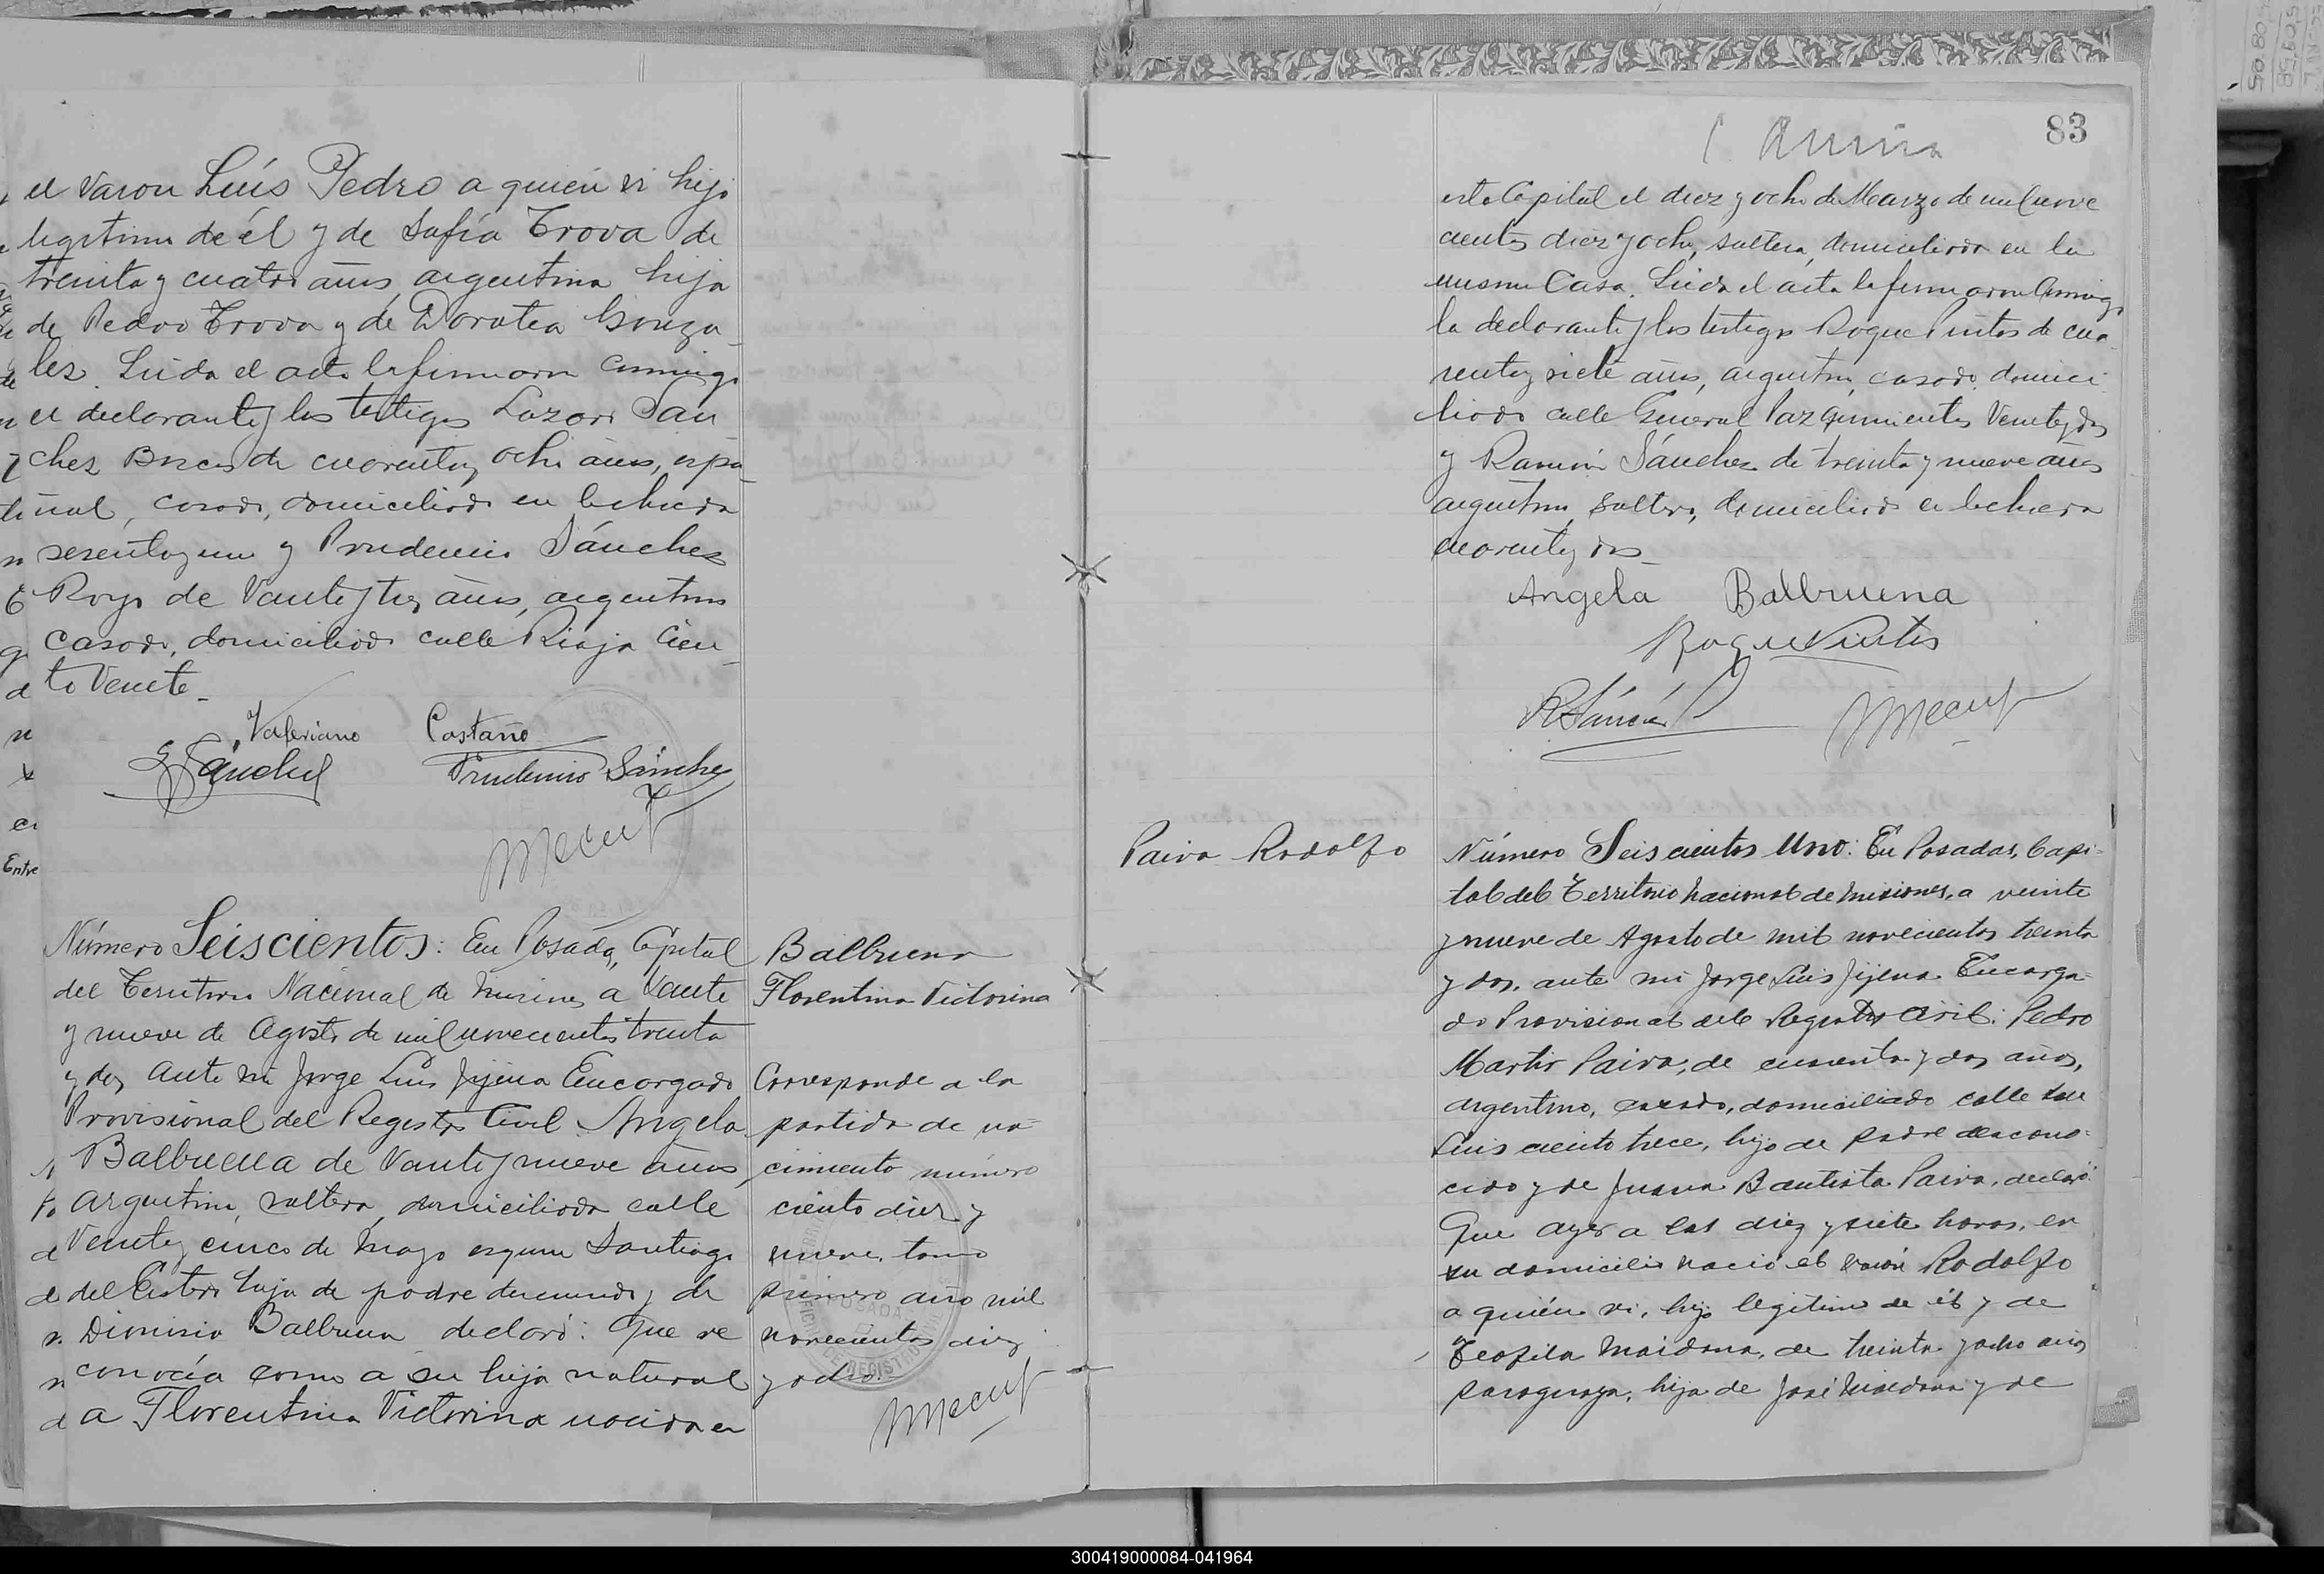 el varon Luís Pedro a quien vi hijo
legitimo de él y de Sofía Trova de
treinta y cuatro años, argentina hija
de Pedro Trova y de Dorotea Gonza-
les. Leida el acta la firmaron conmigo
el declarante y los testigos Lazaro San
chez Brices de cuarenta y ocho años, espa-
ñol, casado, domiciliado en la chacra
sesenta y uno y Prudencio Sánchez
Royo de veinte y tres años, argentino
casado, domiciliado calle Rioja cien-
to veinte_
Valeriano Castaño
L Sánchez Prudencio Sánchez
Número Seiscientos: En Posadas, Capital
del Territorio Nacional de Misiones a veinte
y nueve de Agosto de mil novecientos treinta
y dos, ante mi Jorge Luis Jijena Encargado
Provisional del Registro Civil: Angela
Balbuena de veinte y nueve años
argentina, soltera, domiciliada calle
Veinte y cinco de Mayo esquina Santiago
del Estero hija de padre desconocido y de
Dionisia Balbuena declaró: Que re
conocía como a su hija natural
a Florentina Victorina nacida en
Balbuena
Florentina Victorina
Corresponde a la
partida de na=
cimiento número
ciento diez y
nueve, tomo
primero año mil
novecientos diez
y ocho
83
esta Capital el diez y ocho de Marzo de mil nove
cientos diez y ocho, soltera, domiciliada en la
misma casa. Leida el acta la firmaron conmigo
la declarante y los testigos Roque Pintos de cua-
renta y siete años, argentino, casado, domici
liado calle General Paz quinientos veinte y dos
y Ramón Sánchez de treinta y nueve años
argentino, soltero, domiciliado en la chacra
cuarenta y dos_
Angela Balbuena
Roque Pintos
R Sánchez
Paiva Rodolfo
Número Seiscientos Uno: En Posadas, Capi=
tal del Territorio Nacional de Misiones, a veinte
y nueve de Agosto de mil novecientos treinta
y dos, ante mi Jorge Luis Jijena Encarga=
do Provisional del Registro Civil: Pedro
Martir Paiva, de cincuenta y dos años,
argentino, casado, domiciliado calle San
Luis ciento trece, hijo de padre descono=
cido y de Juana Bautista Paiva, declaró:
Que ayer a las diez y siete horas, en
su domicilio nació el varón Rodolfo
a quién vi, hijo legítimo de él y de
Teofila Maidana, de treinta y ocho años
paraguaya, hija de José Maidana y de
300419000084-041964